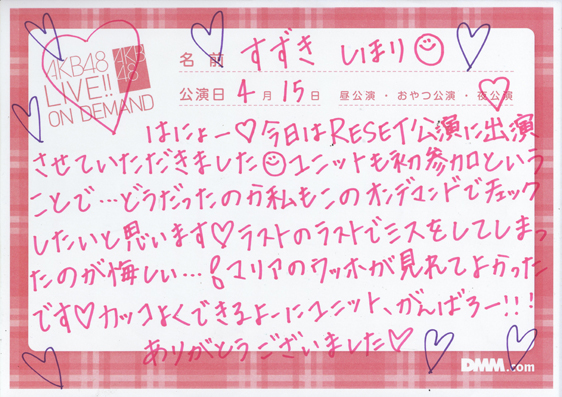 AKB48
LIVE!!
ON DEMAND
AKB
48
名前 すずき しほり
公演日 4月 15日 昼公演・おやつ公演・夜公演
はにょー♡今日はRESET公演に出演
させていただきました☺ユニットも初参加という
ことで…どうだったのか私もこのオンデマンドでチェック
したいと思います♡ラストのラストでミスをしてしまっ
たのが悔しい…！マリアのウッホが見れてよかった
です♡カッコよくできるよーにユニット、がんばろー!!!
ありがとうございました♡
DMM.com